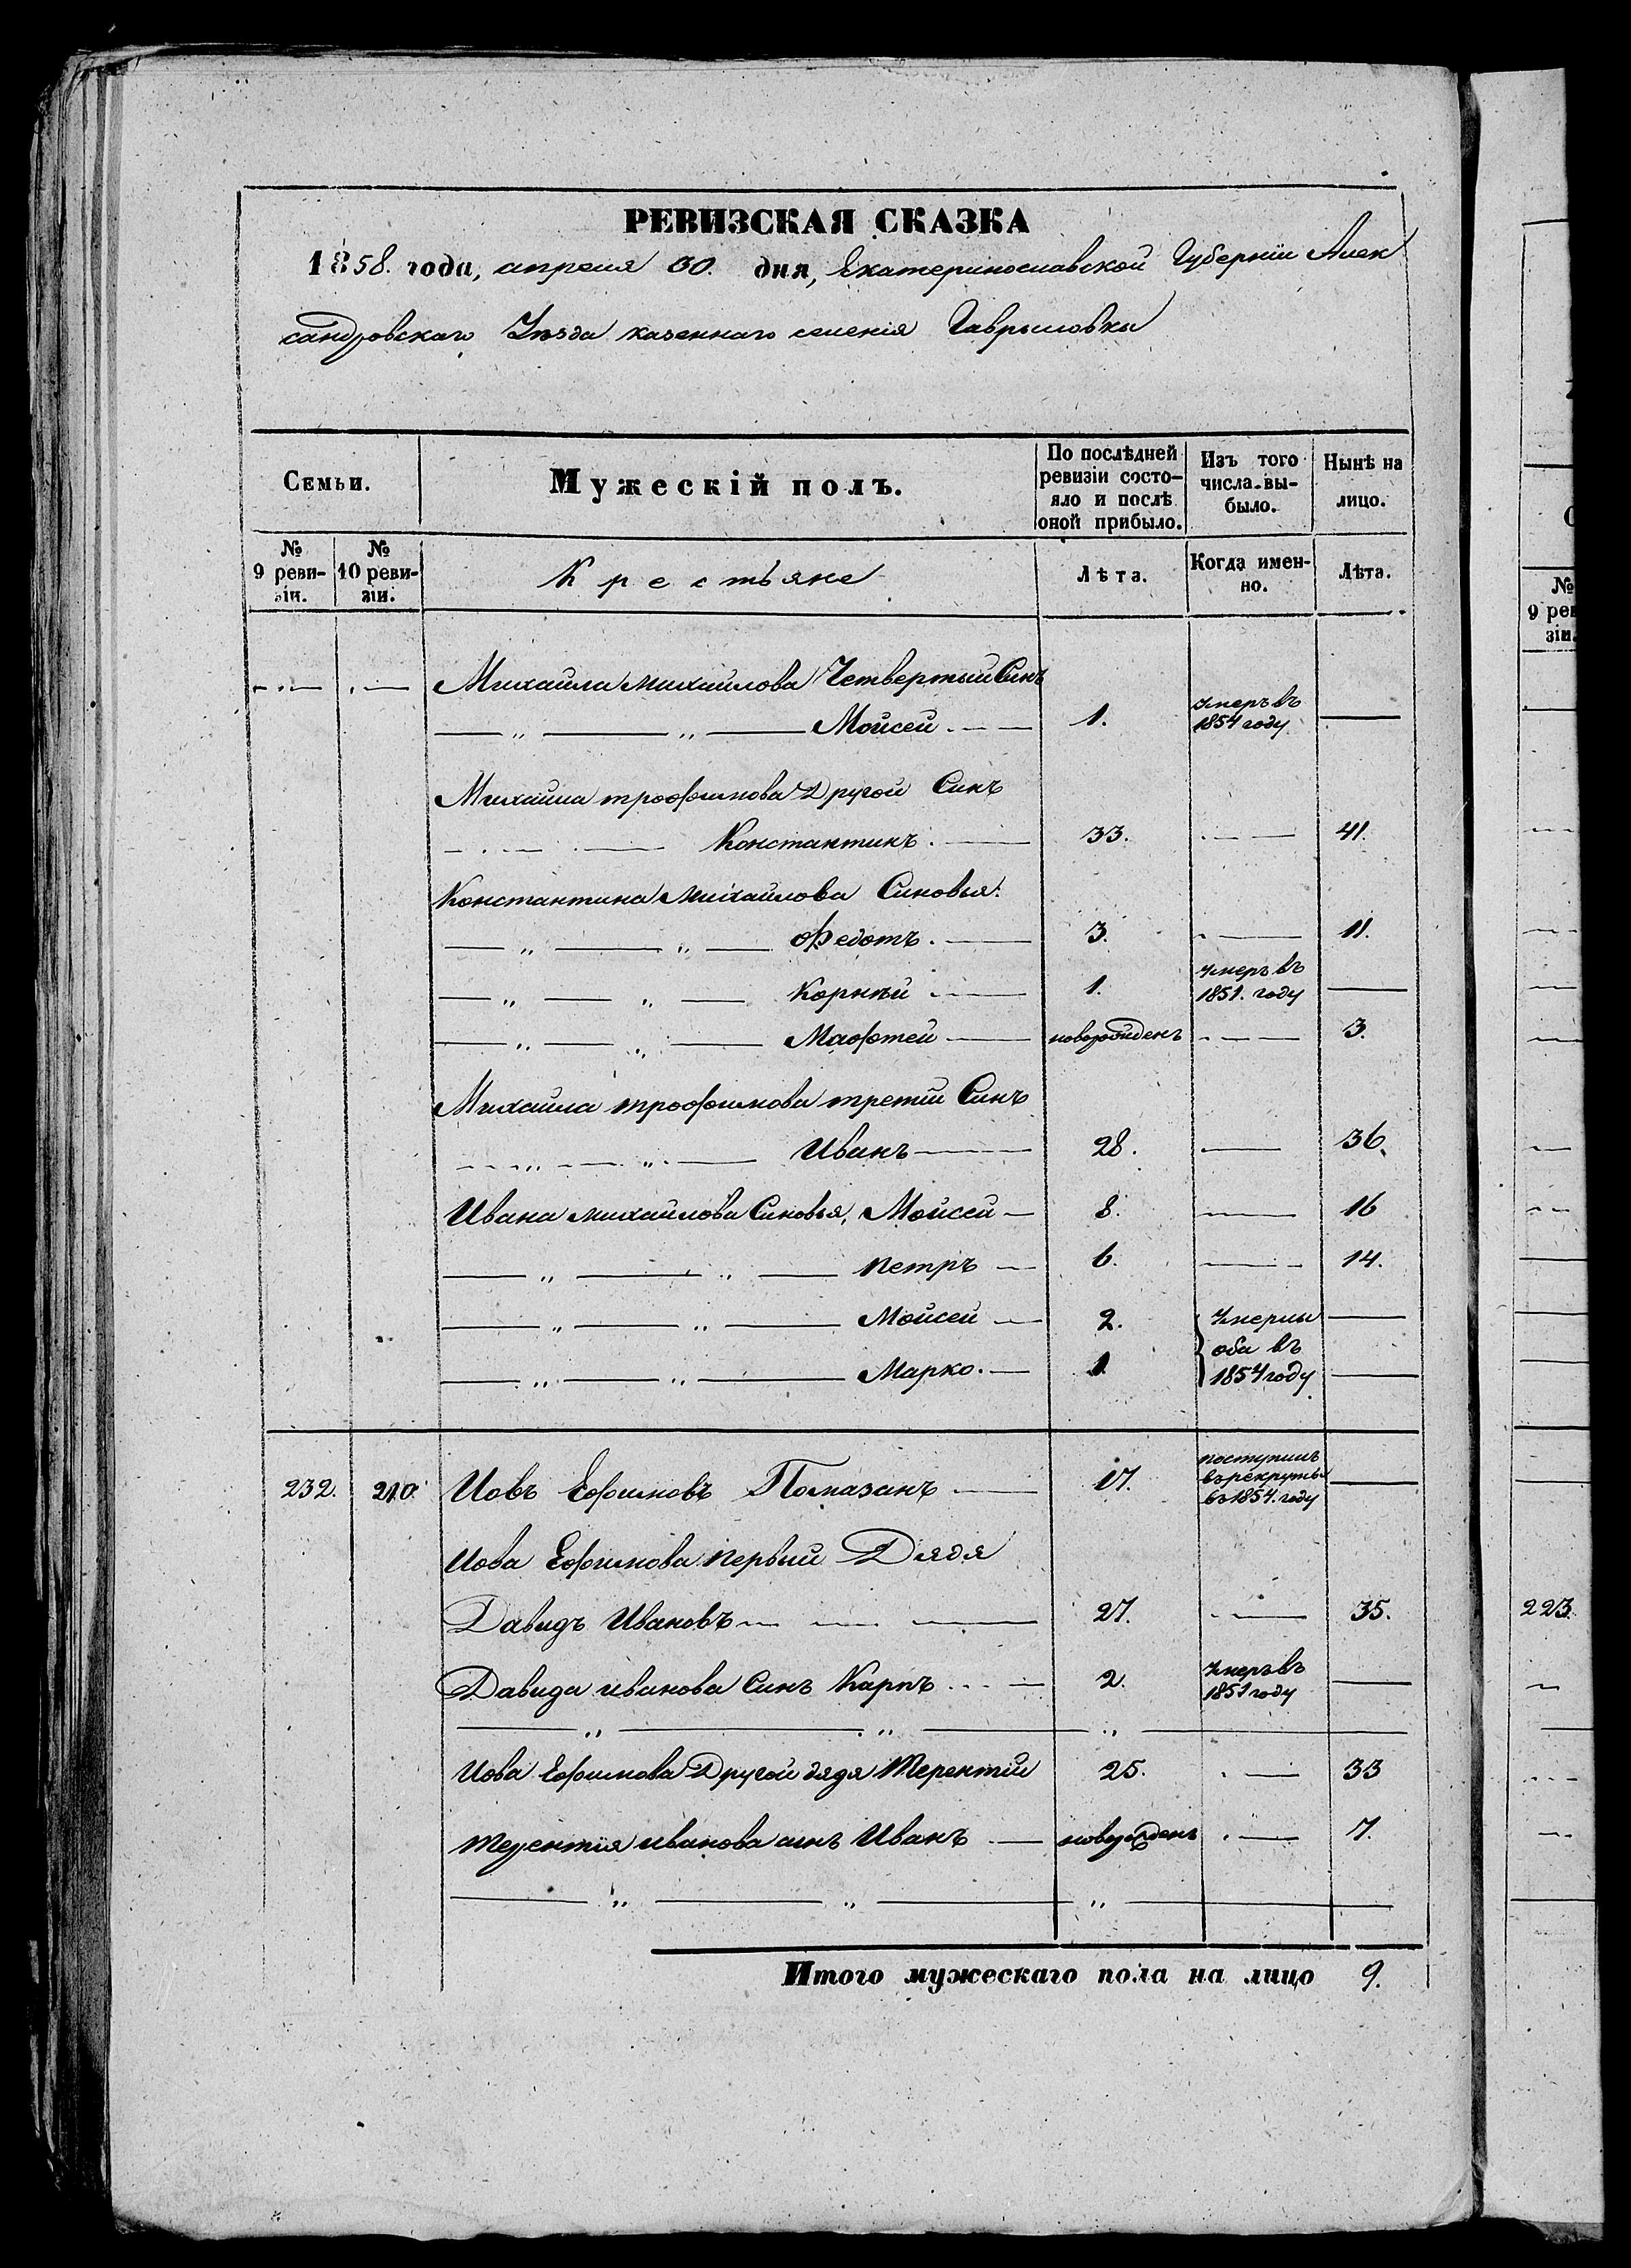 РЕВИЗСКАЯ СКАЗКА
1858. года, апреля 30. дня, Екатеринославской Губерніи Алек
сандровскаго Уѣзда казеннаго селенія Гаврыловки
Семьи.
Мужескій полъ.
По послѣдней ревизіи состо-яло и послѣ оной прибыло.
Изъ того числа вы-было.
Нынѣ на лицо.
№ 9 реви-зіи.
№ 10 реви-зіи.
Крестьяне
Лѣта.
Когда имен-но.
Лѣта.
Михайла Михайлова Четвертый Синъ
Мойсей 1. умеръ въ 1854 году
Михайла трофимова Другой Синъ
Константинъ. 33. 41.
Константина Михайлова Синовья:
Федотъ. 3. 11.
Корнѣй 1. умеръ въ 1851. году
Мафтей новорожденъ 3.
Михайла трофимова третій Синъ
Иванъ 28. 36.
Ивана Михайлова Синовья, Мойсей 8. 16
петръ 6. 14.
Мойсей 2. умерлы
Марко. 1. оба въ 1854 году
232. 210. Иовъ Ефимовъ Помазанъ 17. поступилъ въ рекруты въ 1854. году
Иова Ефимова первый Дядя
Давидъ Ивановъ 27. 35.
Давида иванова Синъ Карпъ 2. умеръ въ 1851 году
Иова Ефимова Другой дядя Терентій 25. 33
Терентія иванова синъ Иванъ новорожденъ 7.
Итого мужескаго пола на лицо 9.
№ 9 рев зіи.
223.